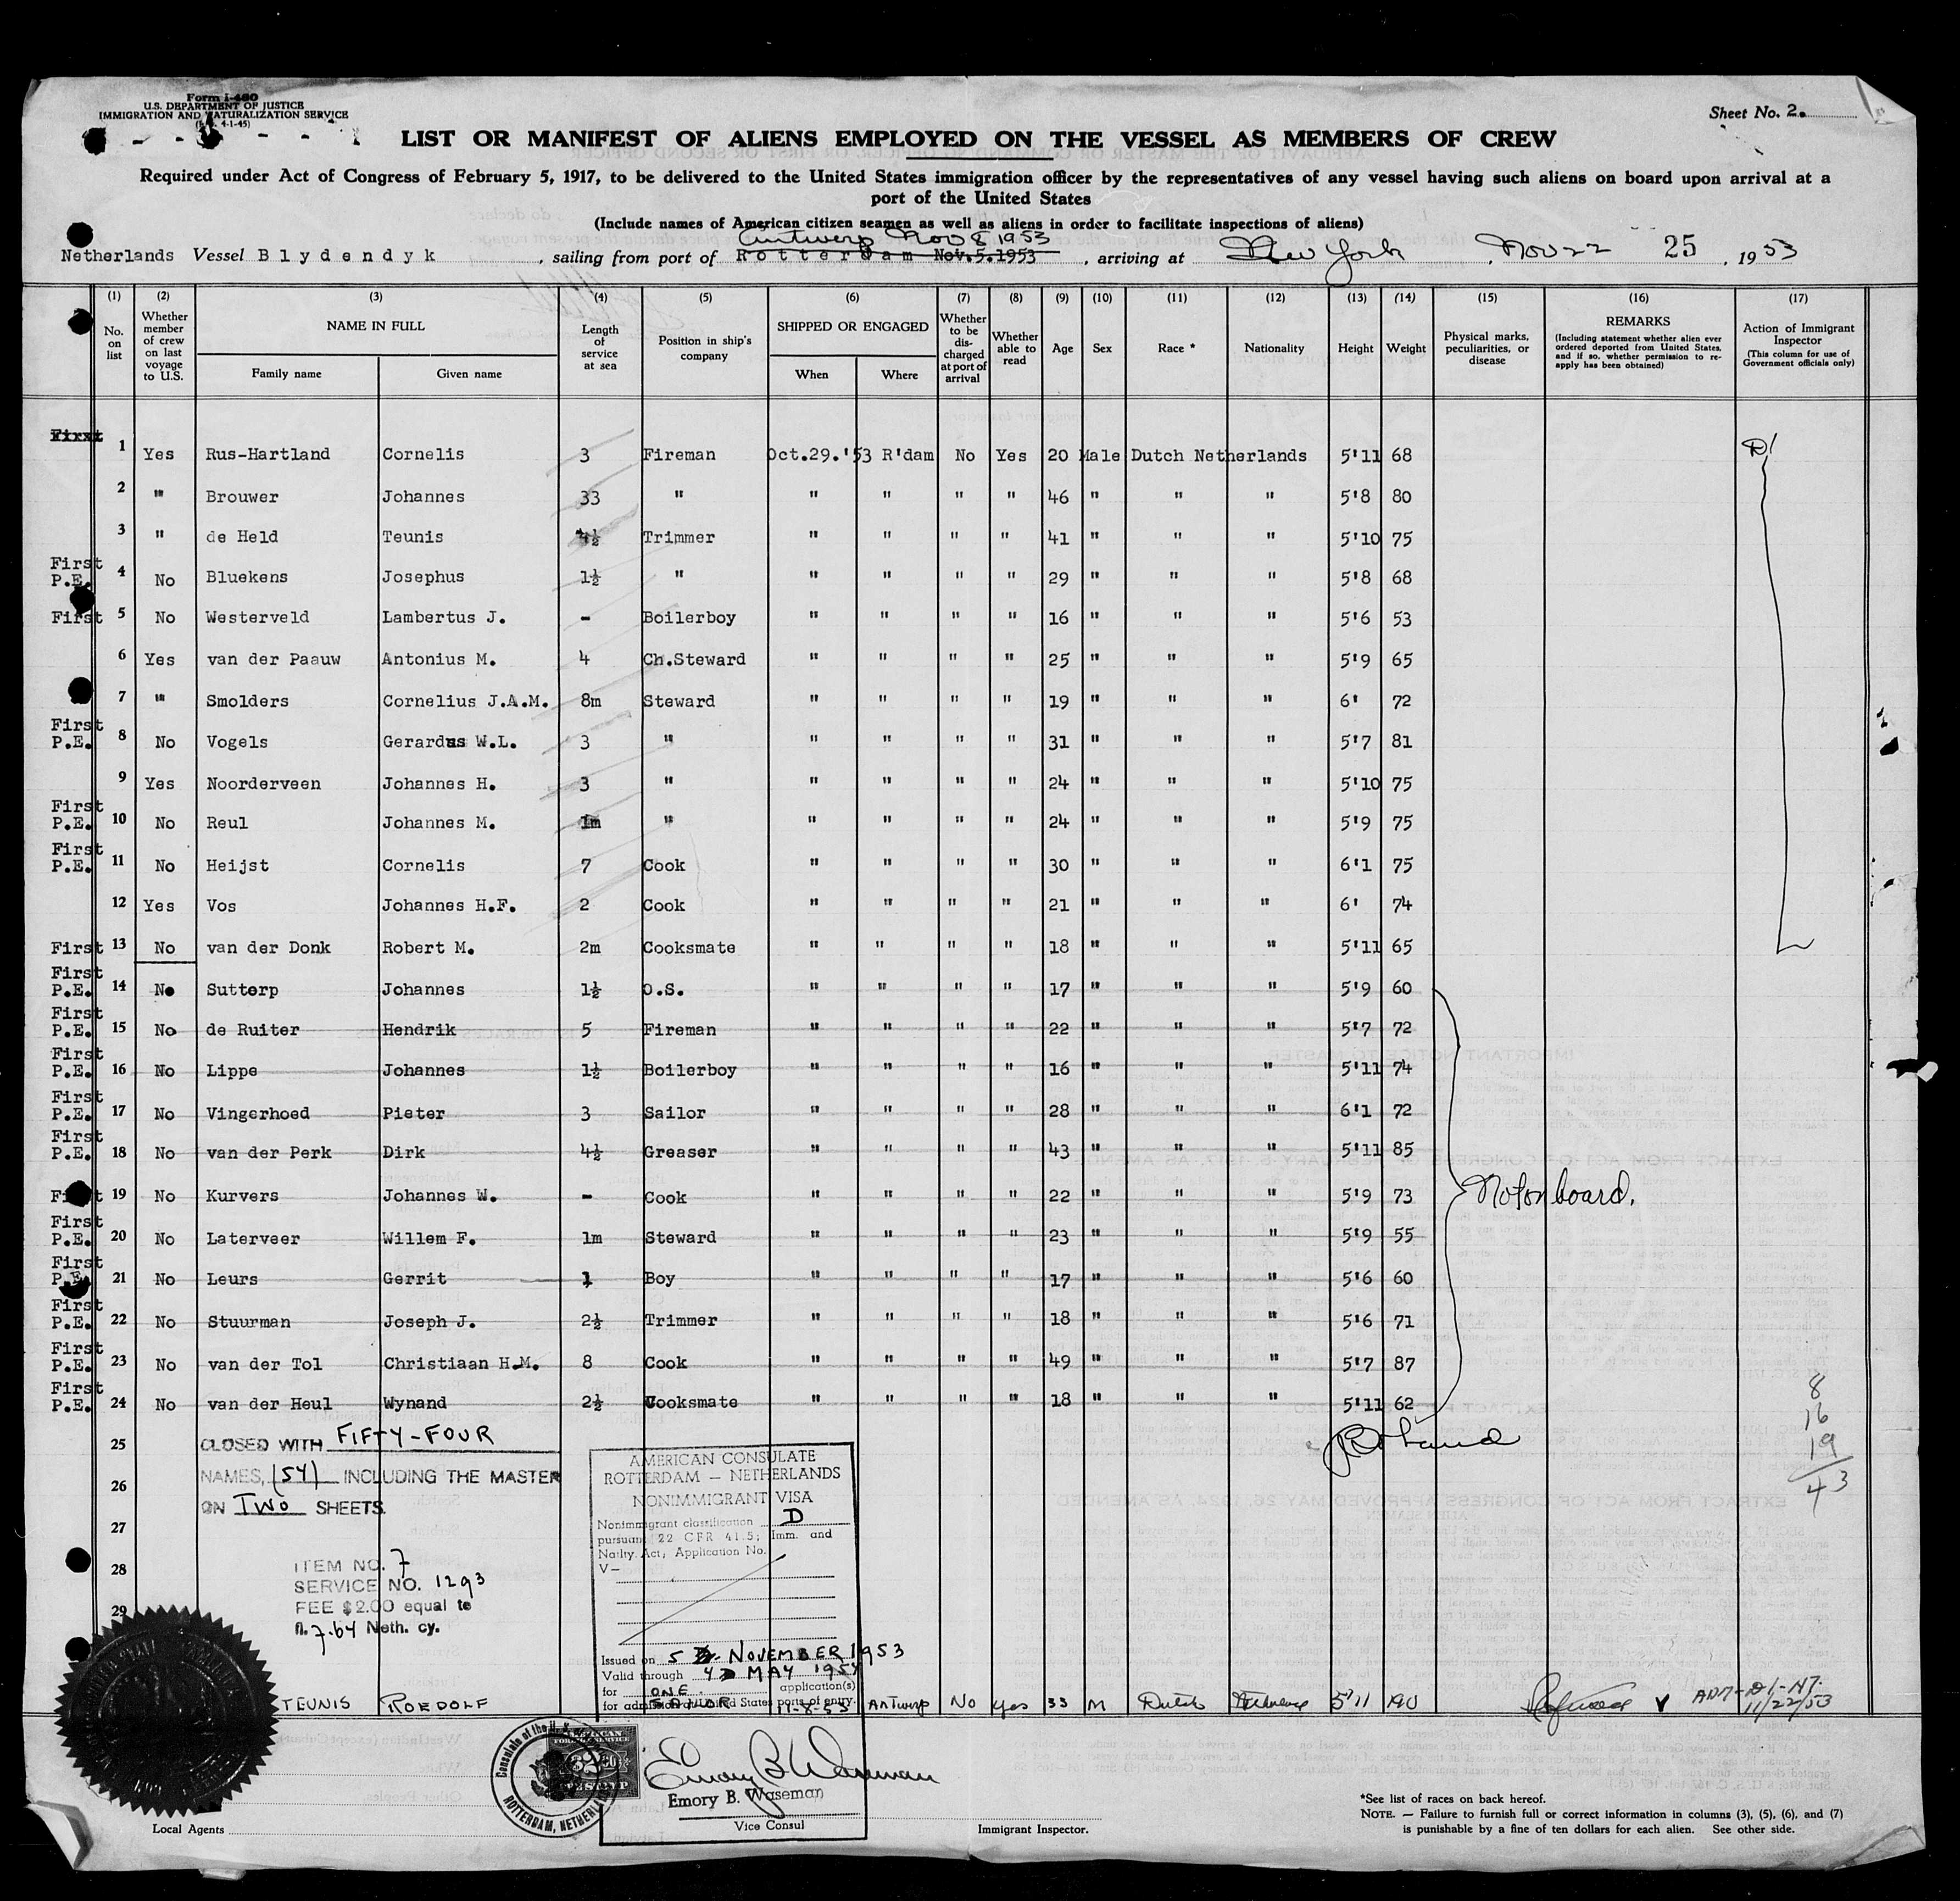 Form I-480
U.S. DEPARTMENT OF JUSTICE
IMMIGRATION AND NATURALIZATION SERVICE
4-1-45)
Sheet No. 2.
LIST OR MANIFEST OF ALIENS EMPLOYED ON THE VESSEL AS MEMBERS OF CREW
Required under Act of Congress of February 5, 1917, to be delivered to the United States immigration officer by the representatives of any vessel having such aliens on board upon arrival at a
port of the United States
(Include names of American citizen seamen as well as aliens in order to facilitate inspections of aliens)
Antwerp Nov 8 1953
Netherlands Vessel Blydendyk , sailing from port of Rotterdam Nov.5.1953 , arriving at New York , Nov 22 25 , 1953
(1) (2) (3) (4) (5) (6) (7) (8) (9) (10) (11) (12) (13) (14) (15) (16) (17)
No. on list
Whether member of crew on last voyage to U.S.
NAME IN FULL
Family name
Given name
Length of service at sea
Position in ship's company
SHIPPED OR ENGAGED
When
Where
Whether to be discharged at port of arrival
Whether able to read
Age
Sex
Race *
Nationality
Height
Weight
Physical marks, peculiarities, or disease
REMARKS
(Including statement whether alien ever ordered deported from United States, and if so, whether permission to re-apply has been obtained)
Action of Immigrant Inspector
(This column for use of Government officials only)
First 1 Yes Rus-Hartland Cornelis 3 Fireman Oct.29.'53 R'dam No Yes 20 Male Dutch Netherlands 5'11 68 D1
2 " Brouwer Johannes 33 " " " " " 46 " " " 5'8 80
3 " de Held Teunis 4½ Trimmer " " " " 41 " " " 5'10 75
First P.E. 4 No Bluekens Josephus 1½ " " " " " 29 " " " 5'8 68
First 5 No Westerveld Lambertus J. - Boilerboy " " " " 16 " " " 5'6 53
6 Yes van der Paauw Antonius M. 4 Ch.Steward " " " " 25 " " " 5'9 65
7 " Smolders Cornelius J.A.M. 8m Steward " " " " 19 " " " 6' 72
First P.E. 8 No Vogels Gerardus W.L. 3 " " " " " 31 " " " 5'7 81
9 Yes Noorderveen Johannes H. 3 " " " " " 24 " " " 5'10 75
First P.E. 10 No Reul Johannes M. 1m " " " " " 24 " " " 5'9 75
First P.E. 11 No Heijst Cornelis 7 Cook " " " " 30 " " " 6'1 75
12 Yes Vos Johannes H.F. 2 Cook " " " " 21 " " " 6' 74
First 13 No van der Donk Robert M. 2m Cooksmate " " " " 18 " " " 5'11 65
First P.E. 14 No Sutterp Johannes 1½ O.S. " " " " 17 " " " 5'9 60
First P.E. 15 No de Ruiter Hendrik 5 Fireman " " " " 22 " " " 5'7 72
First P.E. 16 No Lippe Johannes 1½ Boilerboy " " " " 16 " " " 5'11 74
First P.E. 17 No Vingerhoed Pieter 3 Sailor " " " " 28 " " " 6'1 72
First P.E. 18 No van der Perk Dirk 4½ Greaser " " " " 43 " " " 5'11 85
First 19 No Kurvers Johannes W. - Cook " " " " 22 " " " 5'9 73 Not on board.
First P.E. 20 No Laterveer Willem F. 1m Steward " " " " 23 " " " 5'9 55
First P.E. 21 No Leurs Gerrit 1 Boy " " " " 17 " " " 5'6 60
First P.E. 22 No Stuurman Joseph J. 2½ Trimmer " " " " 18 " " " 5'6 71
First P.E. 23 No van der Tol Christiaan H.M. 8 Cook " " " " 49 " " " 5'7 87
First P.E. 24 No van der Heul Wynand 2½ Cooksmate " " " " 18 " " " 5'11 62
8
16
19
43
25
26
27
28
29
CLOSED WITH FIFTY-FOUR
NAMES, (54) INCLUDING THE MASTER
ON TWO SHEETS.
ITEM NO. 7
SERVICE NO. 1293
FEE $2.00 equal to
fl. 7.64 Neth. cy.
AMERICAN CONSULATE
ROTTERDAM — NETHERLANDS
NONIMMIGRANT VISA
Nonimmigrant classification D
pursuant 22 CFR 41.5; Imm. and
Natlty. Act, Application No.
V—
Issued on 5 NOVEMBER 1953
Valid through 4 MAY 1954
for ONE application(s)
for admission United States ports of entry.
TEUNIS ROEDOLF SAILOR 11-8-53 Antwerp No Yes 33 M Dutch 5'11 190 V ADM-D1-NY.
11/22/53
Consulate of the U.S.
ROTTERDAM, NETHERLANDS
FOREIGN SERVICE
Emory B. Waseman
Emory B. Waseman
Vice Consul
Local Agents
Immigrant Inspector.
*See list of races on back hereof.
NOTE. — Failure to furnish full or correct information in columns (3), (5), (6), and (7)
is punishable by a fine of ten dollars for each alien. See other side.